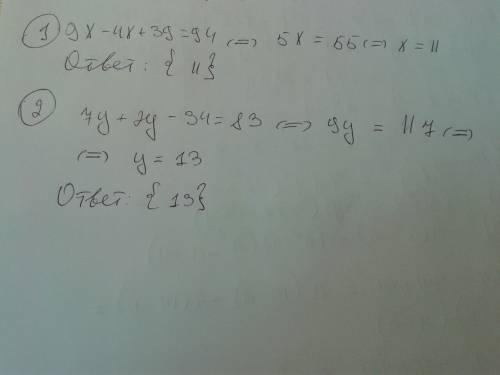 ① 9x - 4x + 39 = 94 (=) 5x = 55 (=) x = 11
Ответ: { 11 }
② 7y + 2y - 34 = 83 (=) 9y = 117 (=)
(=) y = 13
Ответ: { 13 }